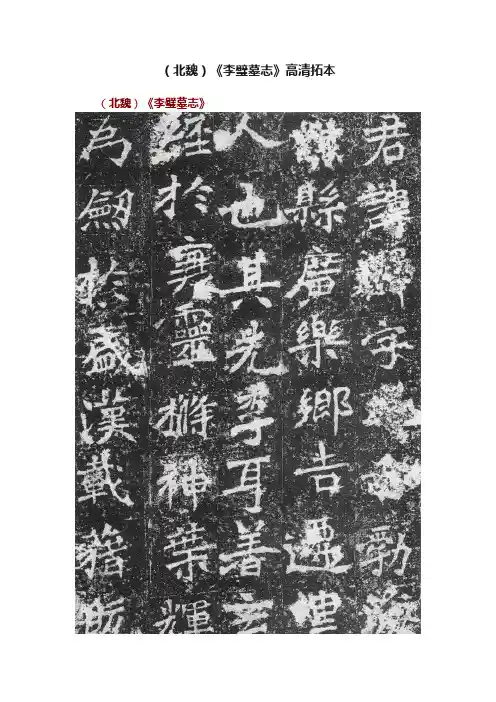 (北魏)《李璧墓志》高清拓本
(北魏)《李璧墓志》
君諱字勃海
縣廣樂鄉吉遷里
人也其先李耳著玄
經於靈神葉輝
為劒於盛漢載籍所